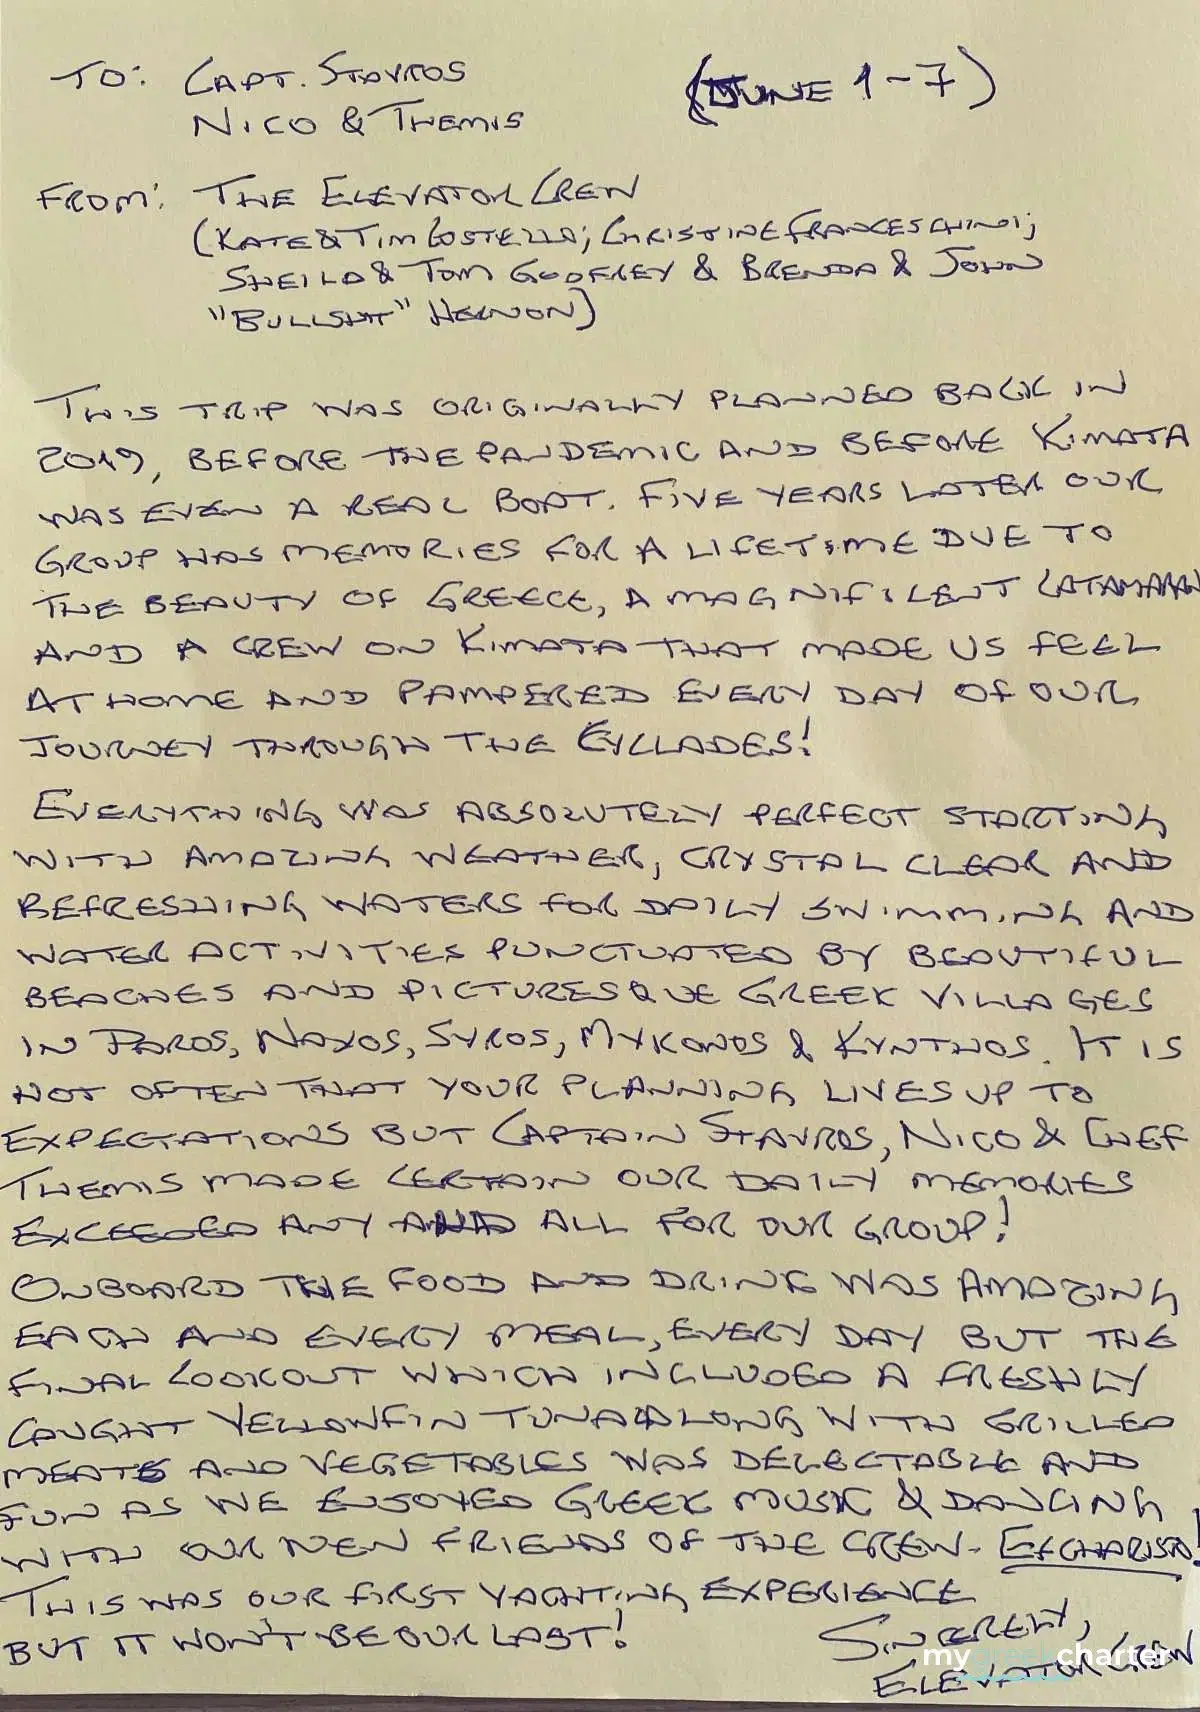 TO: CAPT. STAVROS (JUNE 1-7)
NICO & THEMIS
FROM: THE ELEVATOR CREW
(KATE & TIM COSTELLO; CHRISTINE FRANCESCHINI;
SHEILA & TOM GODFREY & BRENDA & JOHN
"BULLSHIT" HERNON)
THIS TRIP WAS ORIGINALLY PLANNED BACK IN
2019, BEFORE THE PANDEMIC AND BEFORE KIMATA
WAS EVEN A REAL BOAT. FIVE YEARS LATER OUR
GROUP HAS MEMORIES FOR A LIFETIME DUE TO
THE BEAUTY OF GREECE, A MAGNIFICENT CATAMARAN
AND A CREW ON KIMATA THAT MADE US FEEL
AT HOME AND PAMPERED EVERY DAY OF OUR
JOURNEY THROUGH THE CYCLADES!
EVERYTHING WAS ABSOLUTELY PERFECT STARTING
WITH AMAZING WEATHER, CRYSTAL CLEAR AND
REFRESHING WATERS FOR DAILY SWIMMING AND
WATER ACTIVITIES PUNCTUATED BY BEAUTIFUL
BEACHES AND PICTURESQUE GREEK VILLAGES
IN PAROS, NAXOS, SYROS, MYKONOS & KYNTHOS. IT IS
NOT OFTEN THAT YOUR PLANNING LIVES UP TO
EXPECTATIONS BUT CAPTAIN STAVROS, NICO & CHEF
THEMIS MADE CERTAIN OUR DAILY MEMORIES
EXCEEDED ANY AND ALL FOR OUR GROUP!
ONBOARD THE FOOD AND DRINK WAS AMAZING
EACH AND EVERY MEAL, EVERY DAY BUT THE
FINAL COOKOUT WHICH INCLUDED A FRESHLY
CAUGHT YELLOWFIN TUNA ALONG WITH GRILLED
MEATS AND VEGETABLES WAS DELECTABLE AND
FUN AS WE ENJOYED GREEK MUSIC & DANCING
WITH OUR NEW FRIENDS OF THE CREW. EFCHARISTO!
THIS WAS OUR FIRST YACHTING EXPERIENCE
BUT IT WON'T BE OUR LAST!
SINCERELY,
ELEVATOR CREW
mygreekcharter